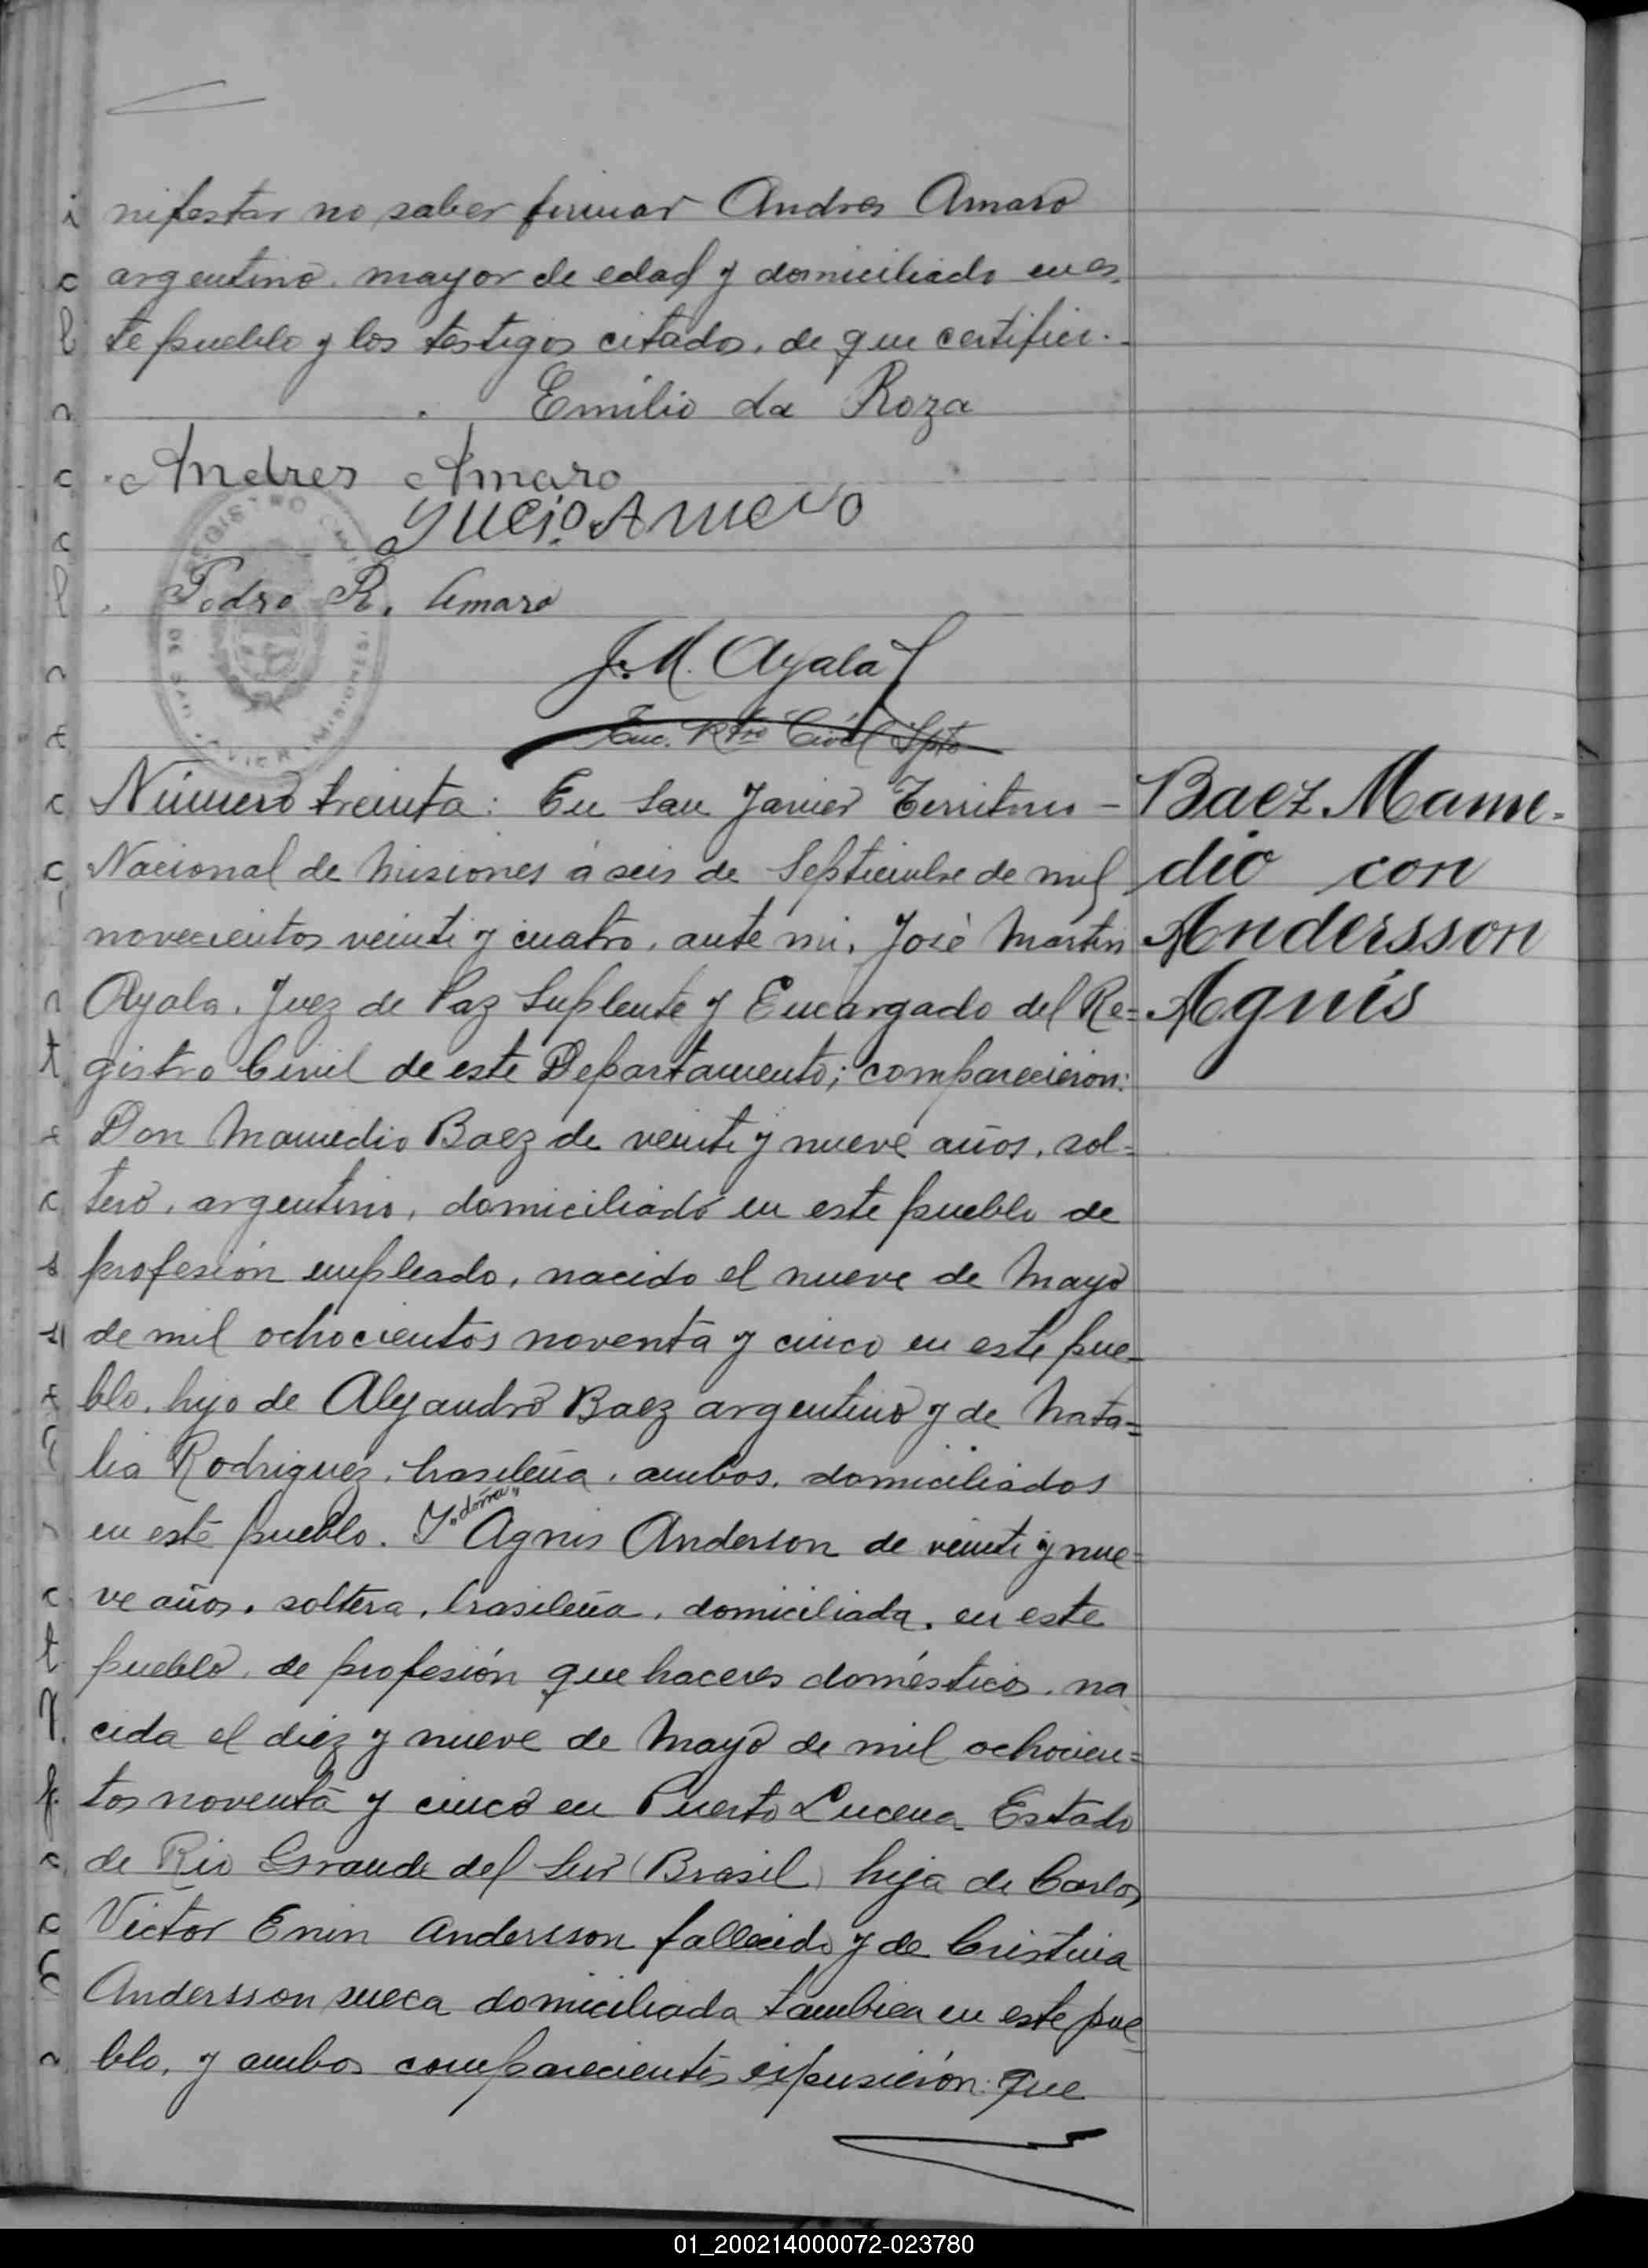 nifestar no saber firmar Andres Amaro
argentino. mayor de edad y domiciliado en es-
te pueblo y los testigos citados. de que certifico.
Emilio da Roza
Andres Amaro
Pedro R. Amaro
J. M. Ayala
Enc. Rtro Civil Spte
REGISTRO CIVIL
DE SAN JAVIER (MISIONES)
Número treinta: En San Javier Territorio -
Nacional de Misiones á seis de Septiembre de mil
novecientos veinti y cuatro. ante mi. José Martin
Ayala. Juez de Paz Suplente y Encargado del Re=
gistro Civil de este Departamento; comparecieron:
Don Mamedio Baez de veinti y nueve años. sol=
tero. argentino. domiciliado en este pueblo de
profesión empleado. nacido el nueve de Mayo
de mil ochocientos noventa y cinco en este pue-
blo. hijo de Alejandro Baez argentino y de Nata=
lia Rodriguez. brasileña. ambos. domiciliados
en este pueblo. Y "doña" Agnis Anderson de veinti y nue=
ve años. soltera. brasileña. domiciliada. en este
pueblo. de profesión que haceres domésticos. na
cida el diez y nueve de Mayo de mil ochocien=
tos noventa y cinco en Puerto Lucena Estado
de Rio Grande del Sur (Brasil) hija de Carlos
Victor Enin Andersson fallecido y de Cristina
Andersson sueca domiciliada tambien en este pue
blo. y ambos comparecientes expusieron: que
Baez Mame-
dio con
Andersson
Agnis
01_200214000072-023780